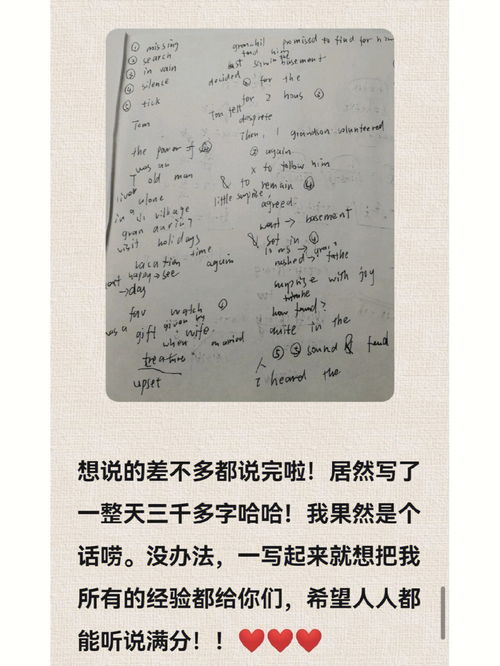 ① missing
② search
③ in vain
④ silence
⑤ tick
Tom
the power of ④
was an
T old man
lives alone
in a village
gran during
visit holidays
vacation time
again
happy → see
→ day
fav watch ①
was a gift given by
wife
when married
treature
upset
promised to find for him
find him
basement
decided ② for the
for 2 hous ③
Tom felt
desprete
Then, 1 grandson volunteered
② again
x to follow him
& to remain ④
little surprise
agreed.
went → basement
& set in ④
rushed →
surprise with joy
how found?
quite in the
⑤ ⑤ sound & find
人
I heard the
想说的差不多都说完啦！居然写了
一整天三千多字哈哈！我果然是个
话唠。没办法，一写起来就想把我
所有的经验都给你们，希望人人都
能听说满分！！❤️❤️❤️